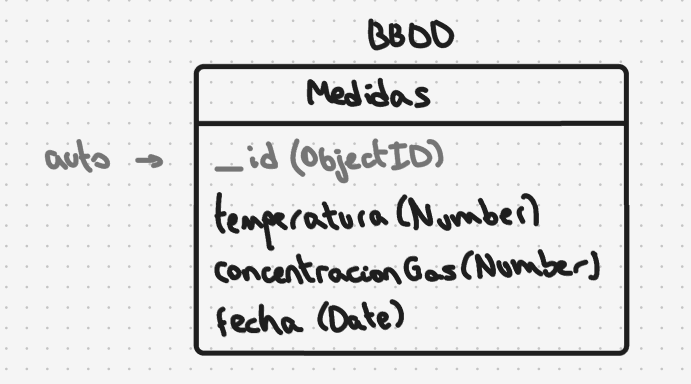 BBDD
Medidas
auto → _id (ObjectID)
temperatura (Number)
concentracionGas (Number)
fecha (Date)